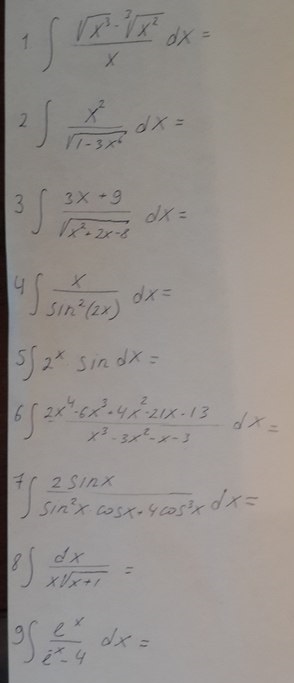 1 ∫ (√x³ - ³√x²)/x dx =
2 ∫ x²/√(1-3x⁶) dx =
3 ∫ (3x+9)/√(x²+2x-8) dx =
4 ∫ x/sin²(2x) dx =
5 ∫ 2ˣ sin dx =
6 ∫ (2x⁴-6x³+4x²-21x-13)/(x³-3x²-x-3) dx =
7 ∫ 2sinx/(sin²x·cosx+4cos³x) dx =
8 ∫ dx/(x√(x+1)) =
9 ∫ eˣ/(eˣ-4) dx =